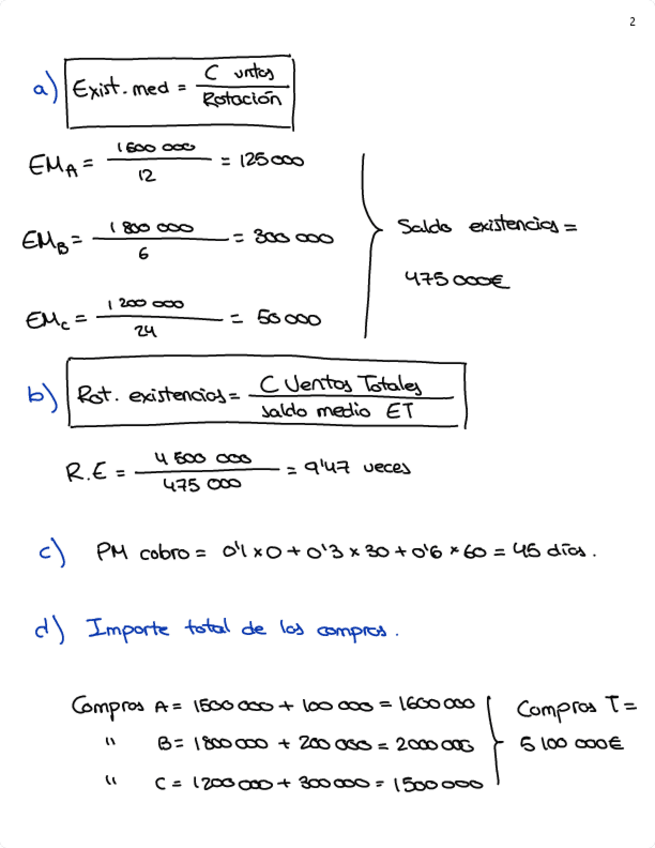 2
a) Exist. med = C vntas / Rotación
EM_A = 1500 000 / 12 = 125000
EM_B = 1 800 000 / 6 = 300 000
EM_C = 1 200 000 / 24 = 50 000
Saldo existencias =
475 000€
b) Rot. existencias = C Ventas Totales / saldo medio ET
R.E = 4 500 000 / 475 000 = 9'47 veces
c) PM cobro = 0'1 x 0 + 0'3 x 30 + 0'6 * 60 = 45 días.
d) Importe total de las compras.
Compras A = 1500 000 + 100 000 = 1600 000
" B = 1800 000 + 200 000 = 2000 000
" C = 1200 000 + 300 000 = 1500 000
Compras T =
5 100 000€